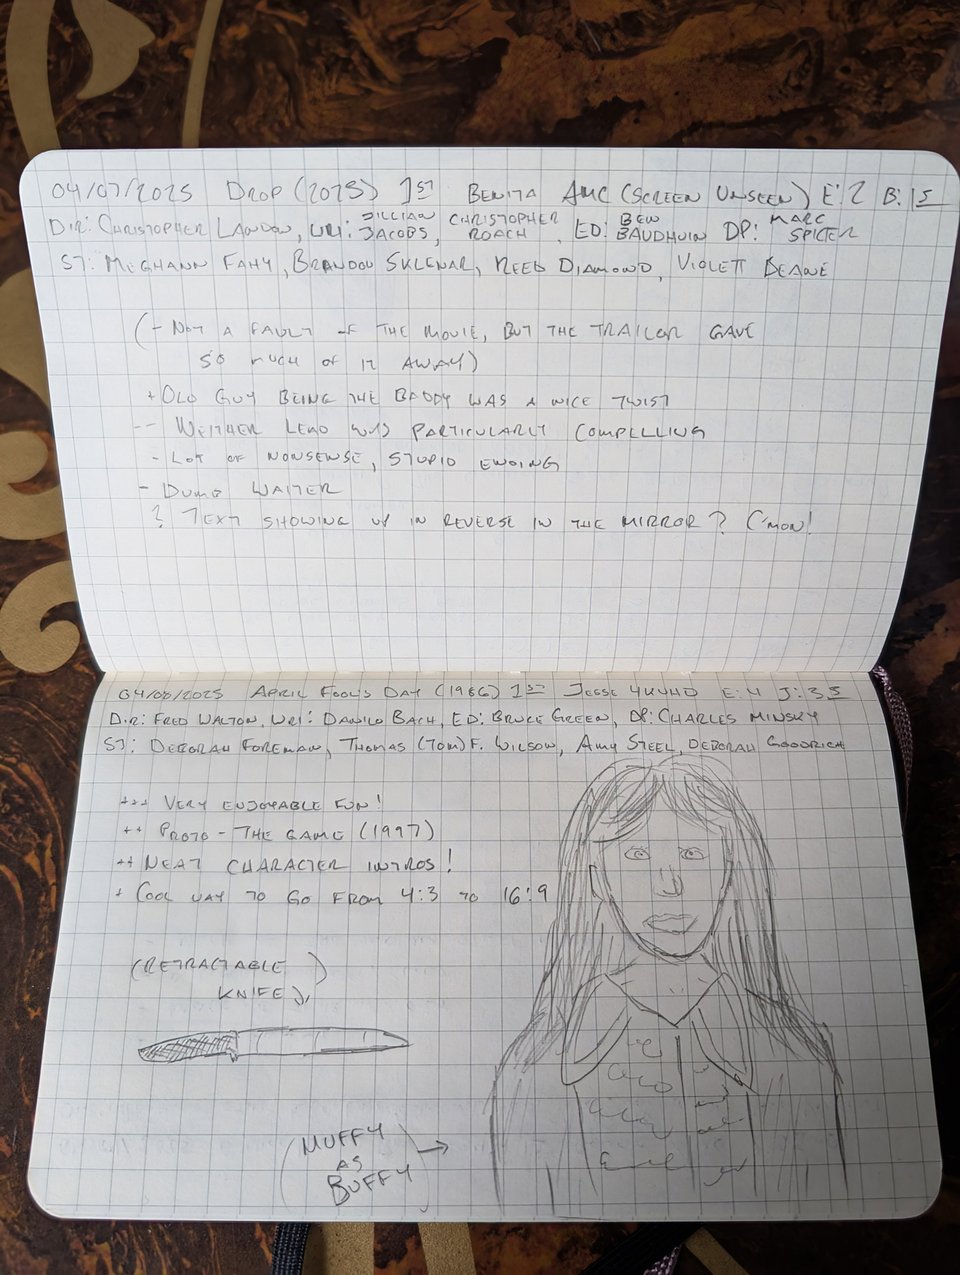 04/07/2025 DROP (2025) 1ST BENITA AMC (SCREEN UNSEEN) E:2 B:15
DIR: CHRISTOPHER LANDON, WRI: JILLIAN JACOBS, CHRISTOPHER ROACH, ED: BEN BAUDHUIN DP: MARC SPICER
ST: MEGHANN FAHY, BRANDON SKLENAR, REED DIAMOND, VIOLETT BEANE
(- NOT A FAULT OF THE MOVIE, BUT THE TRAILER GAVE
SO MUCH OF IT AWAY)
+ OLD GUY BEING THE BADDY WAS A NICE TWIST
-- NEITHER LEAD WAS PARTICULARLY COMPELLING
- LOT OF NONSENSE, STUPID ENDING
- DUMB WAITER
? TEXT SHOWING UP IN REVERSE IN THE MIRROR? C'MON!
04/08/2025 APRIL FOOL'S DAY (1986) 1ST JESSE 4KUHD E:4 J:35
DIR: FRED WALTON, WRI: DANILO BACH, ED: BRUCE GREEN, DP: CHARLES MINSKY
ST: DEBORAH FOREMAN, THOMAS (TOM) F. WILSON, AMY STEEL, DEBORAH GOODRICH
+++ VERY ENJOYABLE FUN!
++ PROTO-THE GAME (1997)
++ NEAT CHARACTER INTROS!
+ COOL WAY TO GO FROM 4:3 TO 16:9
(RETRACTABLE
KNIFE)
(MUFFY
AS
BUFFY) →